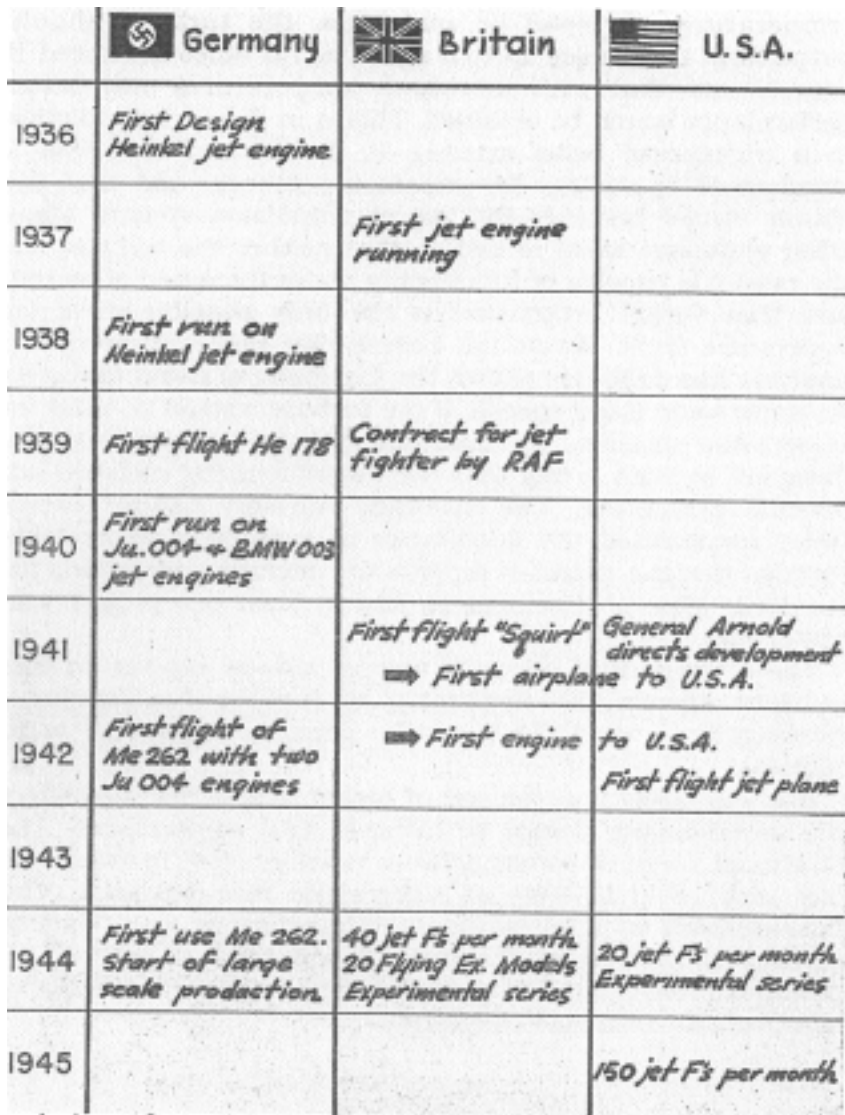 Germany Britain U.S.A.
1936
First Design
Heinkel jet engine
1937
First jet engine
running
1938
First run on
Heinkel jet engine
1939
First flight He 178
Contract for jet
fighter by RAF
1940
First run on
Ju.004 + BMW 003
jet engines
1941
First flight "Squirt"
➡ First airplane to U.S.A.
General Arnold
directs development
1942
First flight of
Me 262 with two
Ju 004 engines
➡ First engine to U.S.A.
First flight jet plane
1943
1944
First use Me 262.
Start of large
scale production.
40 jet F's per month
20 Flying Ex. Models
Experimental series
20 jet F's per month
Experimental series
1945
150 jet F's per month